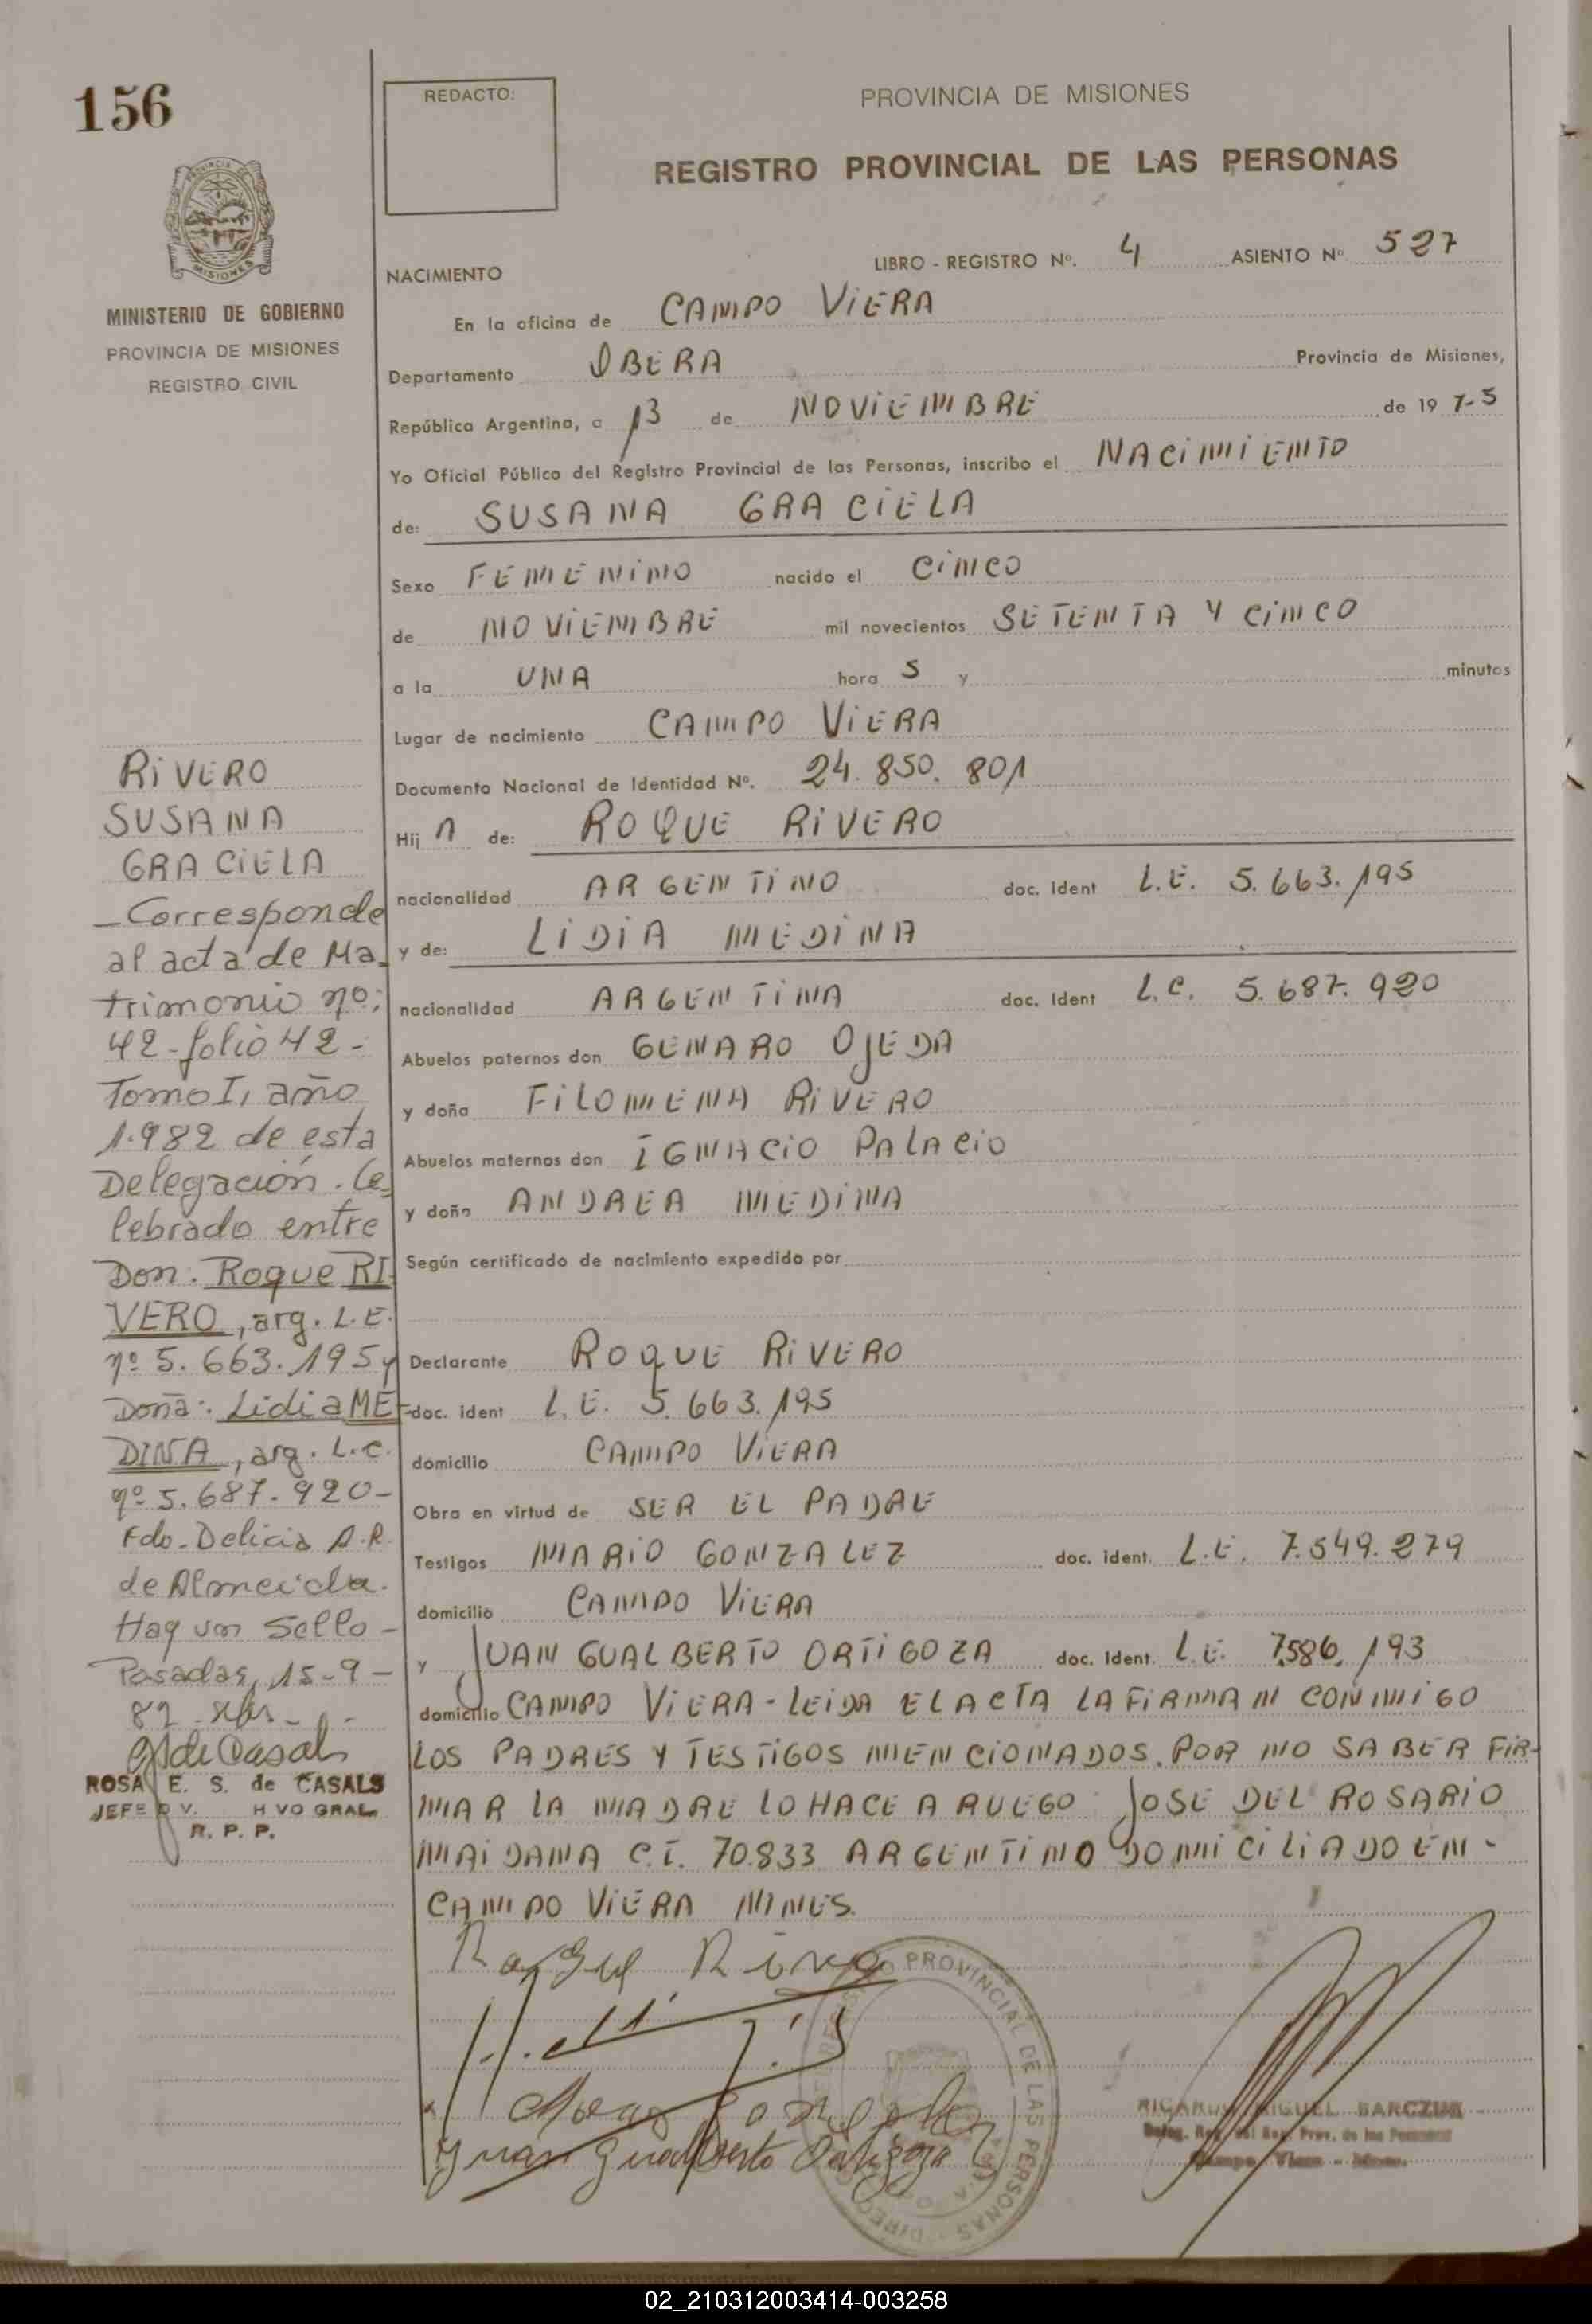 156
REDACTO:
PROVINCIA DE MISIONES
REGISTRO PROVINCIAL DE LAS PERSONAS
MINISTERIO DE GOBIERNO
PROVINCIA DE MISIONES
REGISTRO CIVIL
LIBRO - REGISTRO Nº. 4 ASIENTO Nº 527
NACIMIENTO
En la oficina de CAMPO VIERA
Departamento OBERA Provincia de Misiones,
República Argentina, a 13 de NOVIEMBRE de 19 7-5
Yo Oficial Público del Registro Provincial de las Personas, inscribo el NACIMIENTO
de: SUSANA GRACIELA
Sexo FEMENINO nacido el CINCO
de NOVIEMBRE mil novecientos SETENTA Y CINCO
a la UNA hora S y minutos
Lugar de nacimiento CAMPO VIERA
Documento Nacional de Identidad Nº. 24.850.801
Hij A de: ROQUE RIVERO
nacionalidad ARGENTINO doc. ident L.E. 5.663.195
y de: LIDIA MEDINA
nacionalidad ARGENTINA doc. Ident L.C. 5.687.920
Abuelos paternos don GENARO OJEDA
y doña FILOMENA RIVERO
Abuelos maternos don IGNACIO PALACIO
y doña ANDREA MEDINA
Según certificado de nacimiento expedido por
Declarante ROQUE RIVERO
doc. ident L.E. 5.663.195
domicilio CAMPO VIERA
Obra en virtud de SER EL PADRE
Testigos MARIO GONZALEZ doc. ident. L.E. 7.549.279
domicilio CAMPO VIERA
y JUAN GUALBERTO ORTIGOZA doc. Ident. L.E. 7.586.193
domicilio CAMPO VIERA - LEIDA EL ACTA LA FIRMAN CONMIGO
LOS PADRES Y TESTIGOS MENCIONADOS. POR NO SABER FIR-
MAR LA MADRE LO HACE A RUEGO JOSE DEL ROSARIO
MAIDANA C.I. 70.833 ARGENTINO DOMICILIADO EN -
CAMPO VIERA MNES.
RIVERO
SUSANA
GRACIELA
- Corresponde
al acta de Ma-
trimonio nº:
42 - folio 42 -
Tomo I, año
1.982 de esta
Delegación. Ce-
lebrado entre
Don. Roque RI-
VERO, arg. L.E.
nº 5.663.195 y
Doña: Lidia ME-
DINA, arg. L.C.
nº 5.687.920 -
Fdo. Delicia A.R.
de Almeida.
Hay un Sello -
Posadas, 15-9-
82
ROSA E. S. de CASALS
JEFE
R. P. P.
Roque Rivero
Juan Gualberto Ortigoza
REGISTRO PROVINCIAL DE LAS PERSONAS
RICARDO MIGUEL BARCZUK
Campo Viera - Mnes.
02_210312003414-003258